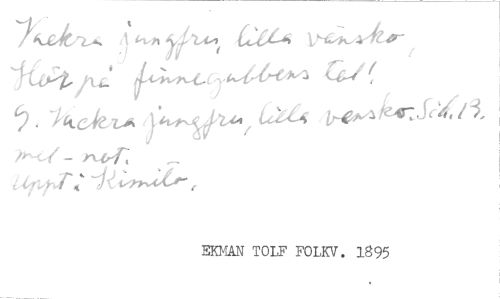 Vackra jungfru, lilla vänsko,
Hör på finnegubbens tal!
9. Vackra jungfru, lilla vensko. Sid. 13.
mel-not.
Uppt. i Kimito.
EKMAN TOLF FOLKV. 1895